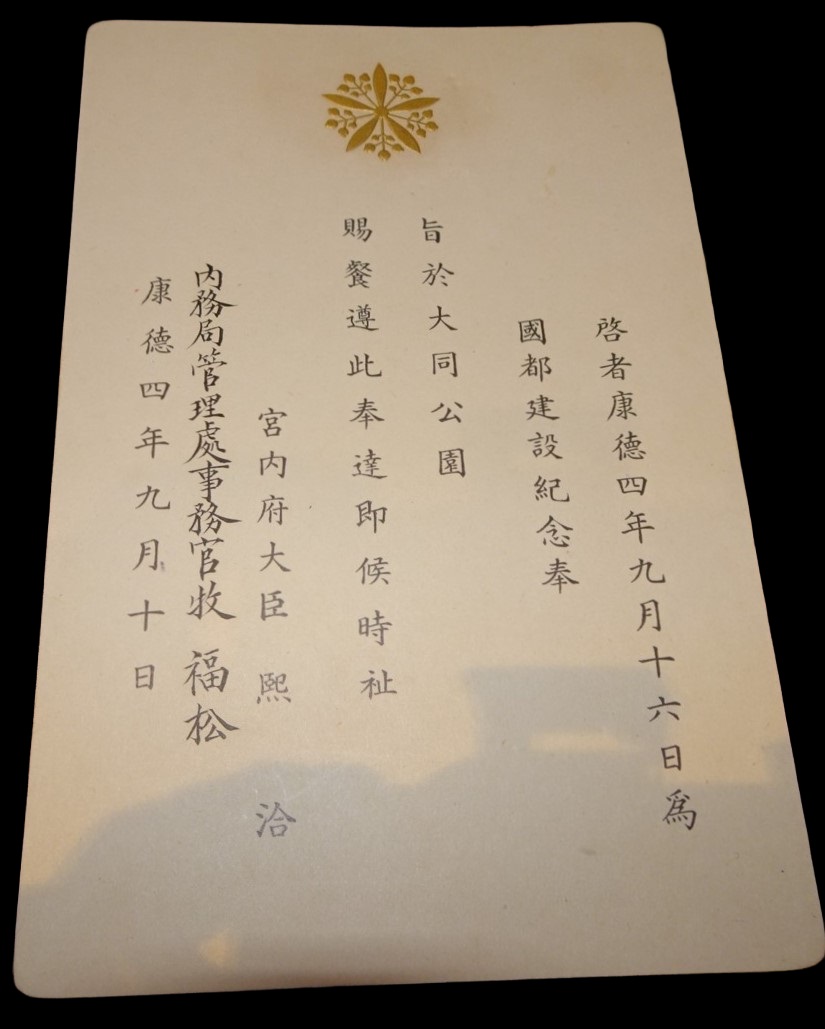 啓者康德四年九月十六日爲
國都建設紀念奉
旨於大同公園
賜餐遵此奉達即候時祉
宮内府大臣 熙 洽
内務局管理處事務官牧 福松
康德四年九月十日